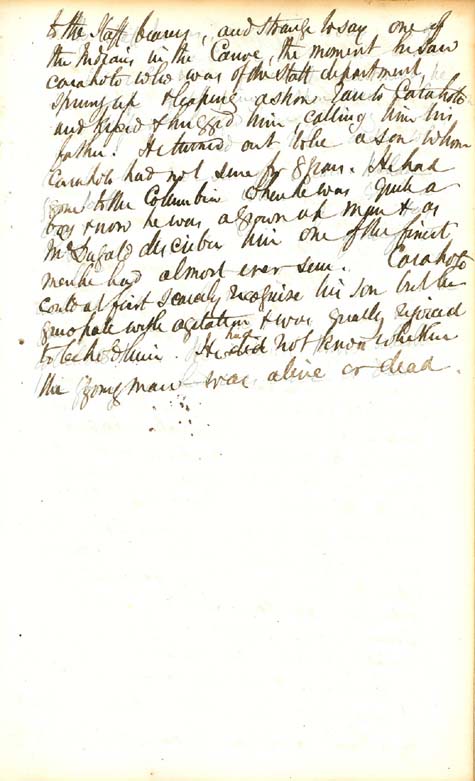 to the Staff bearer, and strange to say one of
the Indians in the Canoe, the moment he saw
Carahoto who was of the Staff department,
Sprung up & leaping ashore ran to Carahoto
and kissed & hugged him calling him his
father. He turned out to be a son whom
Carahoto had not seen for 8 years. He had
gone to the Columbia when he was quite a
boy & now he was a grown up man & as
McDugald describes him one of the finest
men he had almost ever seen. Carahoto
could at first scarcely recognise his son but he
grew pale with agitation & was greatly rejoiced
to behold him. He had did not know whether
the young man was alive or dead.